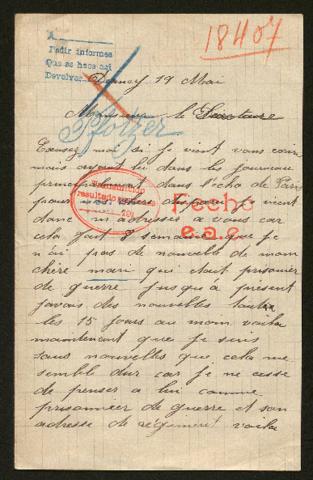 A
Pedir informes
Que se hace así
Devolver
18407
Darney 19 Mai
Monsieur le Secretaire
Pfotzer
Excusez moi si je vient vous écrire
mais ayant lu dans les journeau
principalement dans l'écho de Paris
pour nos chers disparus je vient
donc m'adressés a vous car
cela fait 8 semaines que je
n'ai pas de nouvelle de mon
chère mari qui était prisonier
de guerre jusqu'a présent
javais des nouvelles toute
les 15 jours au moin voila
maintenant que je suis
sans nouvelles que cela me
semble dur car je ne cesse
de penser a lui comme
prisonnier de guerre et son
adresse de régiment voila
resultado
Fecho
e.a.e.